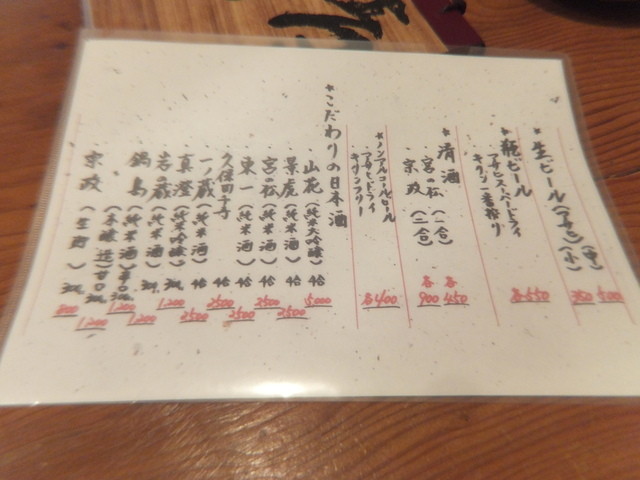 *生ビール(アサヒ)(中) 500
(小) 350
*瓶ビール
アサヒスーパードライ
キリン一番搾り
各550
*清酒
宮の松(一合) 各450
宗政(二合) 各900
*ノンアルコールビール
アサヒドライ
キリンフリー
各400
*こだわりの日本酒
山花(純米大吟醸)4合 5,000
景虎(純米酒)4合 2500
宮の松(純米酒)4合 2500
東一(純米酒)4合 2500
久保田千寿 4合 2500
一ノ蔵(純米酒)4合 2500
真澄(純米吟醸)
若蔵(純米酒) 1,200
鍋島(純米酒) 1,200
宗政(生酒) 800